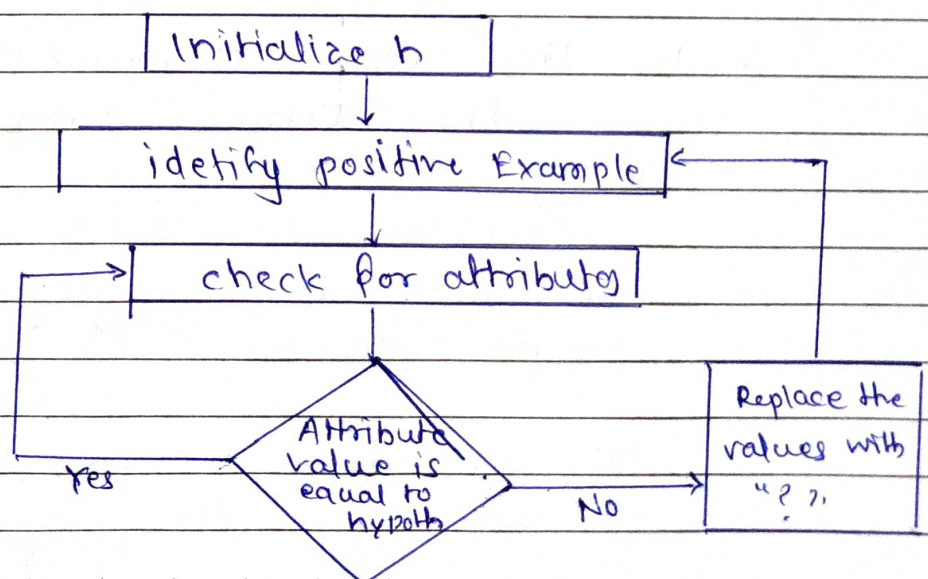 Initialize h
idetify positive Example
check for attributes
Attribute
value is
equal to
hypoth
Yes
No
Replace the
values with
"?"